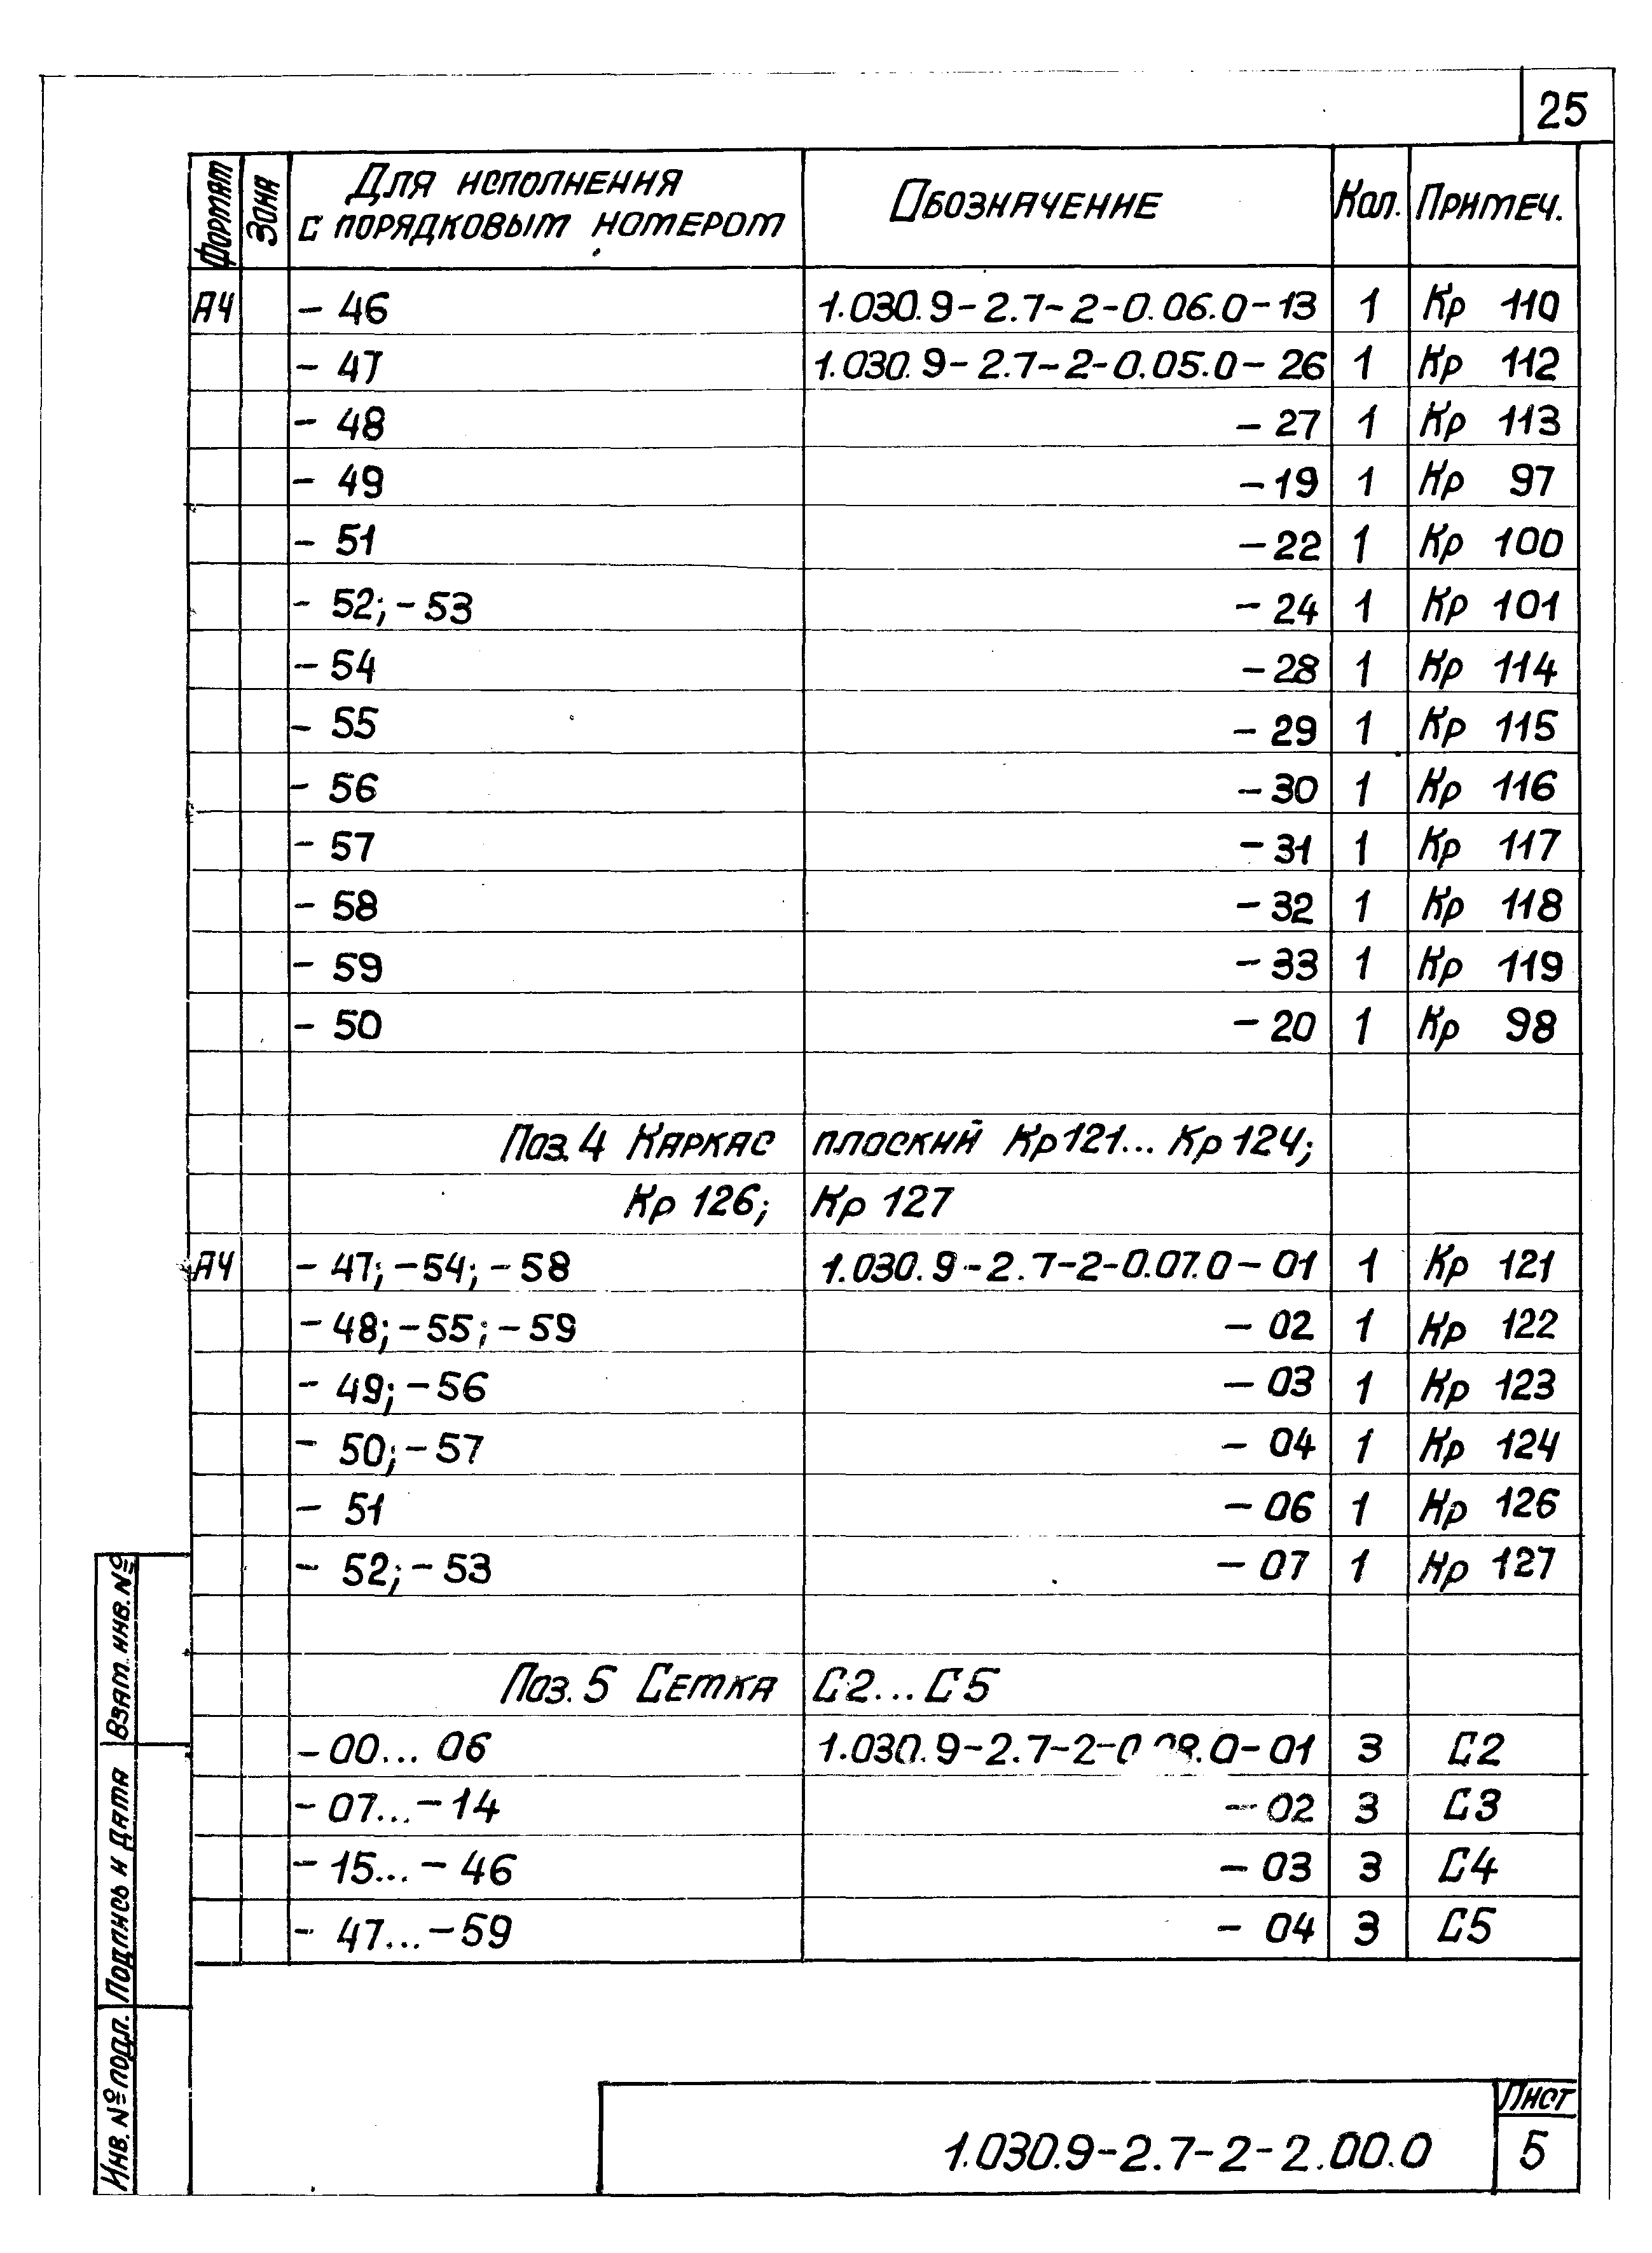 25
Формат Зона Для исполнения с порядковым номером Обозначение Кол. Примеч.
А4 - 46 1.030.9-2.7-2-0.06.0-13 1 Кр 110
- 47 1.030.9-2.7-2-0.05.0-26 1 Кр 112
- 48 -27 1 Кр 113
- 49 -19 1 Кр 97
- 51 -22 1 Кр 100
- 52; -53 -24 1 Кр 101
- 54 -28 1 Кр 114
- 55 -29 1 Кр 115
- 56 -30 1 Кр 116
- 57 -31 1 Кр 117
- 58 -32 1 Кр 118
- 59 -33 1 Кр 119
- 50 -20 1 Кр 98
Поз.4 Каркас плоский Кр121... Кр124;
Кр 126; Кр 127
А4 - 47; -54; -58 1.030.9-2.7-2-0.07.0-01 1 Кр 121
- 48; -55; -59 -02 1 Кр 122
- 49; -56 -03 1 Кр 123
- 50; -57 -04 1 Кр 124
- 51 -06 1 Кр 126
- 52; -53 -07 1 Кр 127
Поз.5 Сетка С2...С5
-00... 06 1.030.9-2.7-2-0.08.0-01 3 С2
-07...-14 -02 3 С3
-15...-46 -03 3 С4
-47...-59 -04 3 С5
Взам. инв. №
Подпись и дата
Инв. № подл.
1.030.9-2.7-2-2.00.0
Лист
5